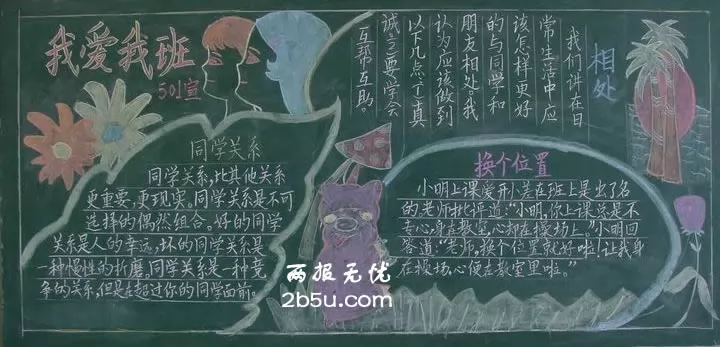 我爱我班
501宣
同学关系
同学关系，比其他关系
更重要，更现实。同学关系是不可
选择的偶然组合。好的同学
关系是人的幸运，坏的同学关系是
一种慢性的折磨，同学关系是一种竞
争的关系，但是在超过你的同学面前。
相处
我们讲在日
常生活中应
该怎样更好
的与同学和
朋友相处。我
认为应该做到
以下几点：个真
诚；二要学会
互帮互助。
换个位置
小明上课爱开小差在班上是出了名
的老师批评道：“小明，你上课总是不
专心身在教室心却在操场上。”小明回
答道：“老师，换个位置就好啦！让我身
在操场心便在教室里啦。”
两报无忧
2b5u.com